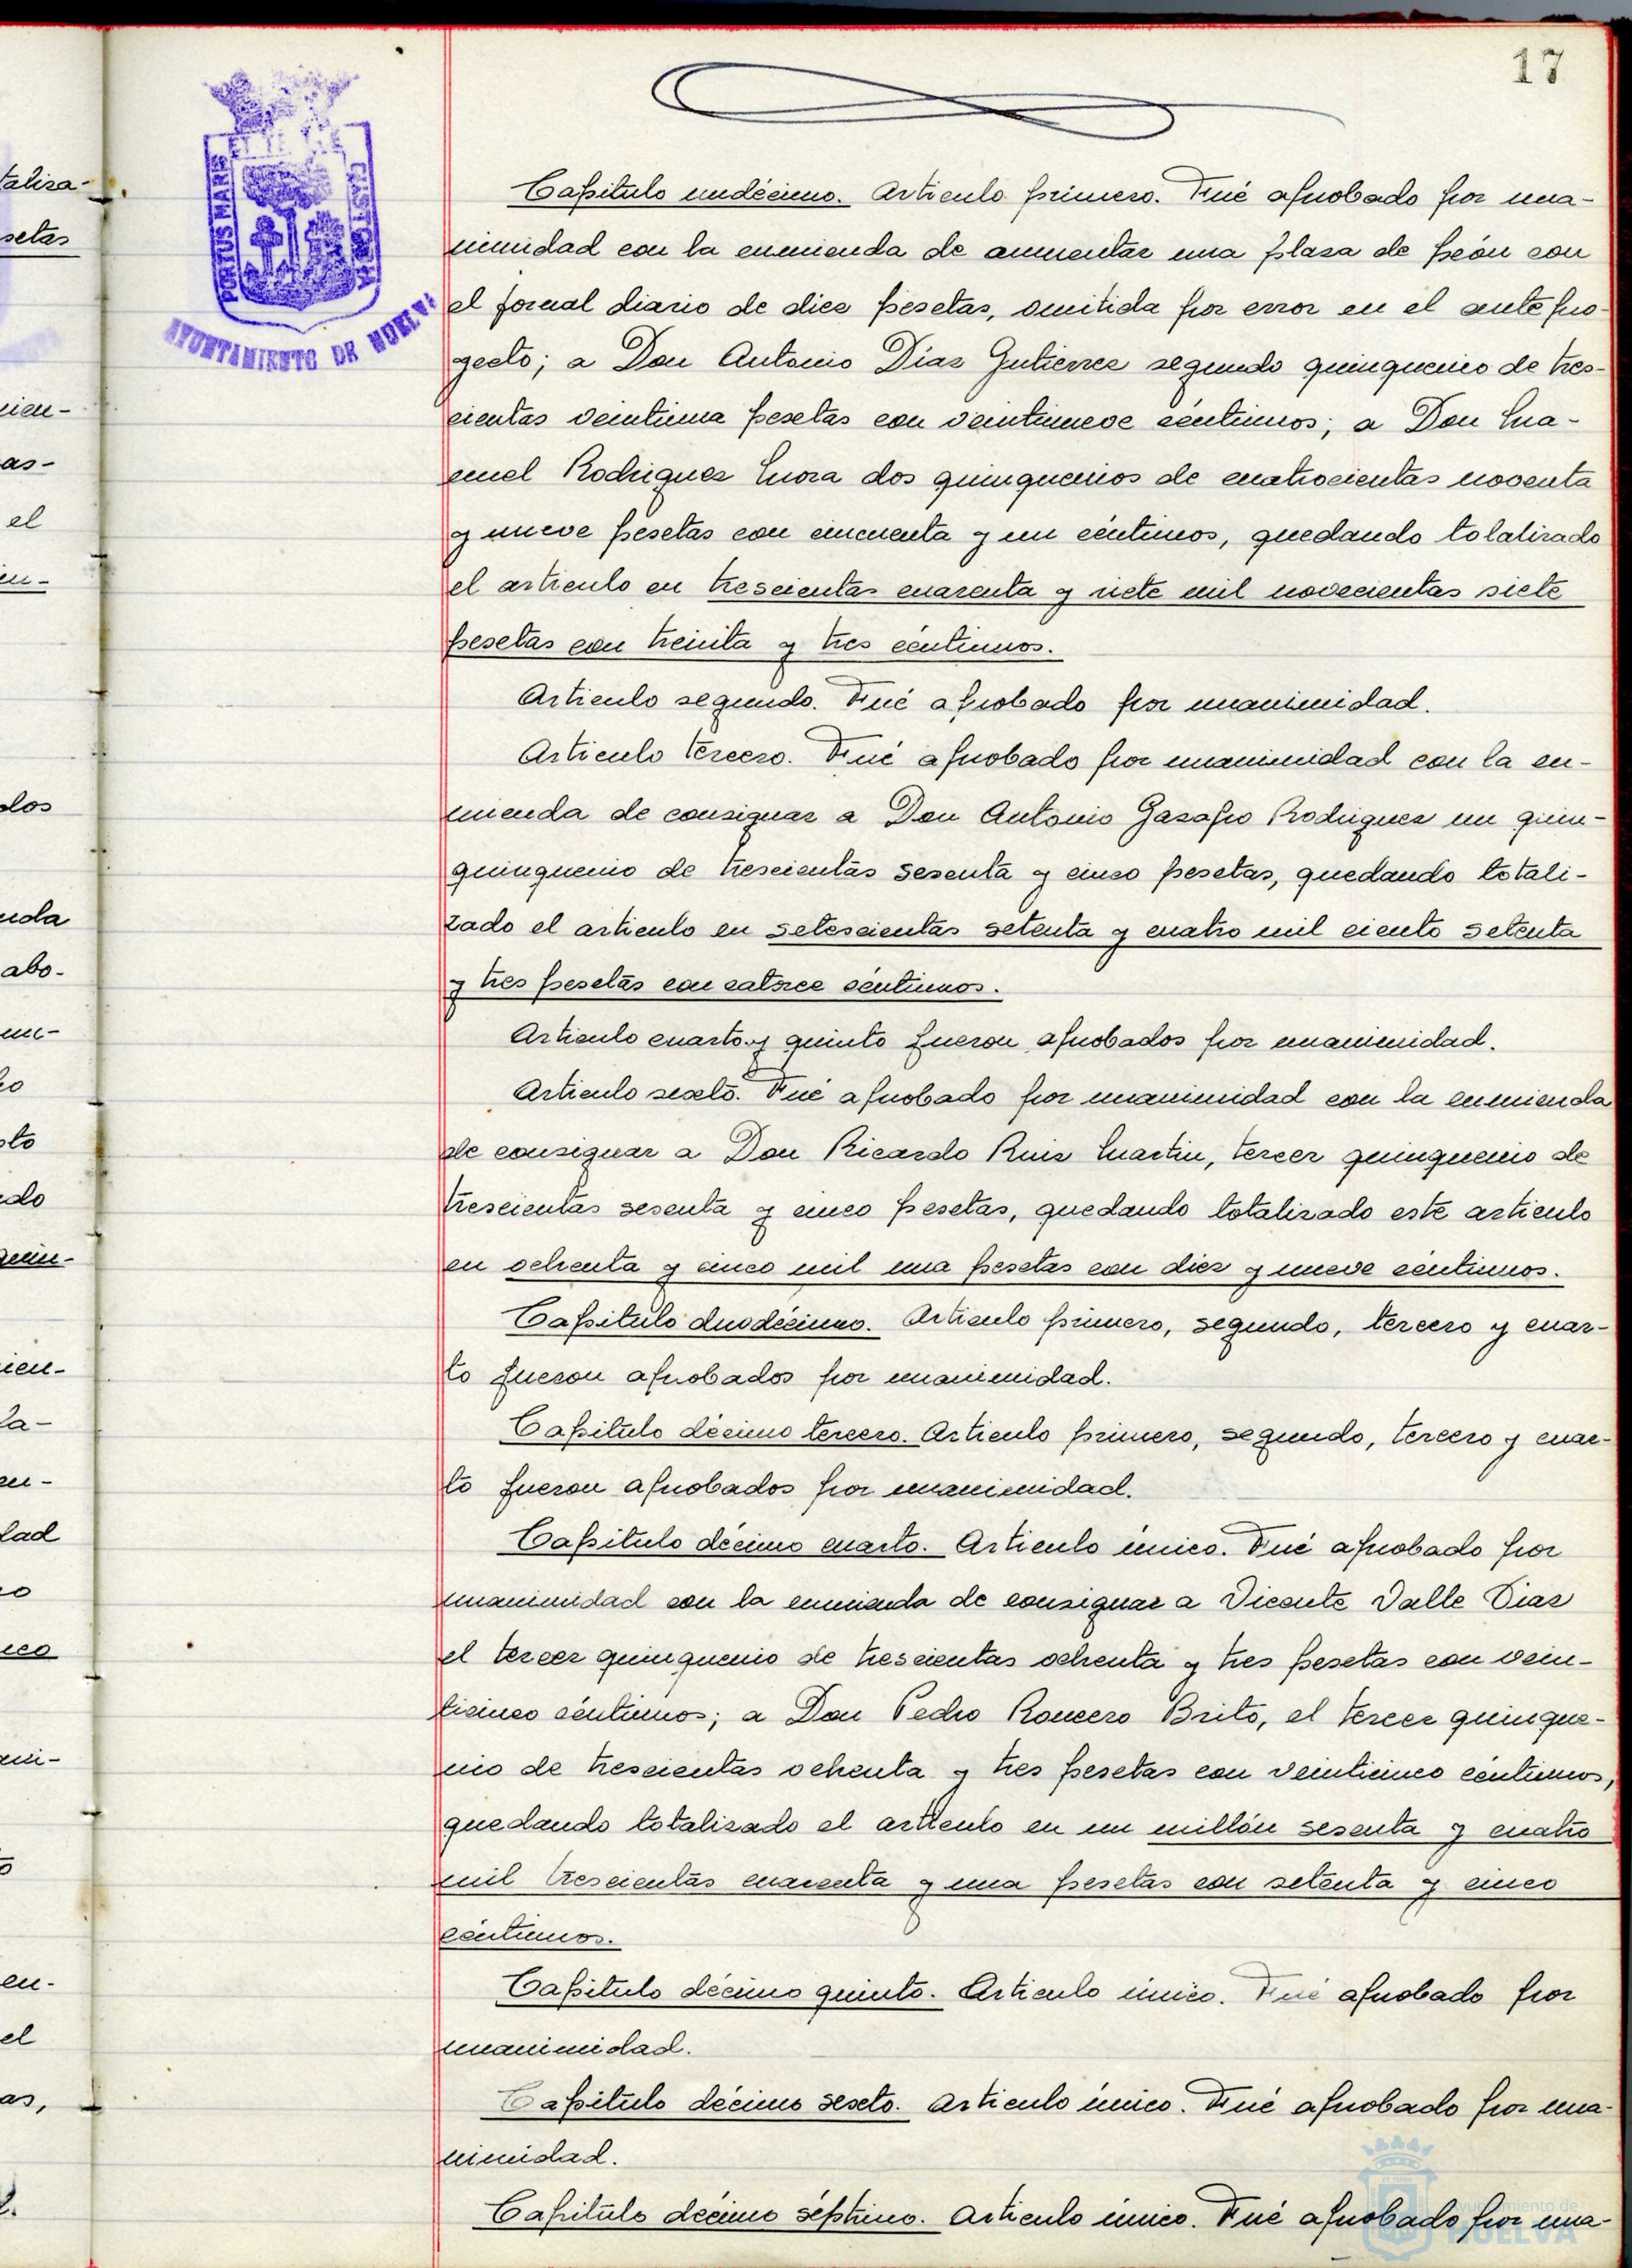 17
PORTUS MARIS ET TERRAE CUSTODIA
AYUNTAMIENTO DE HUELVA
taliza-
setas
cien-
as-
el
dos
abo-
to
quin-
cien-
en-
dad
en-
el
as,
Capitulo undécimo. Articulo primero. Fué aprobado por una-
nimidad con la enmienda de aumentar una plaza de peón con
el jornal diario de diez pesetas, omitida por error en el antepro-
yecto; a Don Antonio Diaz Gutierrez segundo quinquenio de tres-
cientas veintiuna pesetas con veintinueve céntimos; a Don Ma-
nuel Rodriguez Mora dos quinquenios de cuatrocientas noventa
y nueve pesetas con cincuenta y un céntimos, quedando totalizado
el articulo en trescientas cuarenta y siete mil novecientas siete
pesetas con treinta y tres céntimos.
Articulo segundo. Fué aprobado por unanimidad.
Articulo tercero. Fué aprobado por unanimidad con la en-
mienda de consignar a Don Antonio Gazapo Rodriguez un quin-
quinquenio de trescientas sesenta y cinco pesetas, quedando totali-
zado el articulo en setescientas setenta y cuatro mil ciento setenta
y tres pesetas con catorce céntimos.
Articulo cuarto y quinto fueron aprobados por unanimidad.
Articulo sexto. Fué aprobado por unanimidad con la enmienda
de consignar a Don Ricardo Ruiz Martin, tercer quinquenio de
trescientas sesenta y cinco pesetas, quedando totalizado este articulo
en ochenta y cinco mil una pesetas con diez y nueve céntimos.
Capitulo duodécimo. Articulo primero, segundo, tercero y cuar-
to fueron aprobados por unanimidad.
Capitulo décimo tercero. Articulo primero, segundo, tercero y cuar-
to fueron aprobados por unanimidad.
Capitulo décimo cuarto. Articulo único. Fué aprobado por
unanimidad con la enmienda de consignar a Vicente Valle Diaz
el tercer quinquenio de trescientas ochenta y tres pesetas con vein-
ticinco céntimos; a Don Pedro Roncero Brito, el tercer quinque-
nio de trescientas ochenta y tres pesetas con veinticinco céntimos,
quedando totalizado el articulo en un millón sesenta y cuatro
mil trescientas cuarenta y una pesetas con setenta y cinco
céntimos.
Capitulo décimo quinto. Articulo único. Fué aprobado por
unanimidad.
Capitulo décimo sexto. Articulo único. Fué aprobado por una-
nimidad.
Capitulo décimo séptimo. Articulo único. Fué aprobado por una-
Ayuntamiento de
HUELVA